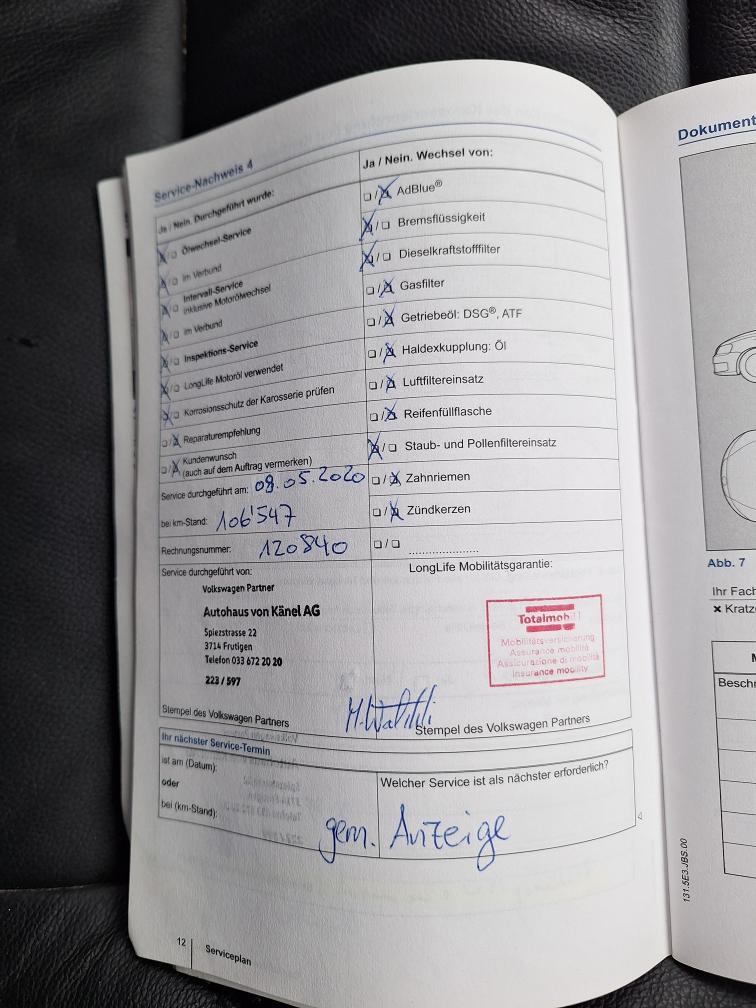 Service-Nachweis 4
Ja / Nein. Durchgeführt wurde:
Ölwechsel-Service
im Verbund
Intervall-Service
inklusive Motorölwechsel
im Verbund
Inspektions-Service
LongLife Motoröl verwendet
Korrosionsschutz der Karosserie prüfen
Reparaturempfehlung
Kundenwunsch
(auch auf dem Auftrag vermerken)
Service durchgeführt am: 08.05.2020
bei km-Stand: 106'547
Rechnungsnummer: 120840
Ja / Nein. Wechsel von:
AdBlue®
Bremsflüssigkeit
Dieselkraftstofffilter
Gasfilter
Getriebeöl: DSG®, ATF
Haldexkupplung: Öl
Luftfiltereinsatz
Reifenfüllflasche
Staub- und Pollenfiltereinsatz
Zahnriemen
Zündkerzen
Service durchgeführt von:
Volkswagen Partner
Autohaus von Känel AG
Spiezstrasse 22
3714 Frutigen
Telefon 033 672 20 20
223 / 597
Stempel des Volkswagen Partners
LongLife Mobilitätsgarantie:
Totalmobil!
Mobilitätsversicherung
Assurance mobilité
Assicurazione di mobilità
Insurance mobility
Stempel des Volkswagen Partners
Ihr nächster Service-Termin
ist am (Datum):
oder
bei (km-Stand):
Welcher Service ist als nächster erforderlich?
gem. Anzeige
12
Serviceplan
Dokument
Abb. 7
Ihr Fach
× Kratze
M
Beschr
131.5E3.JBS.00